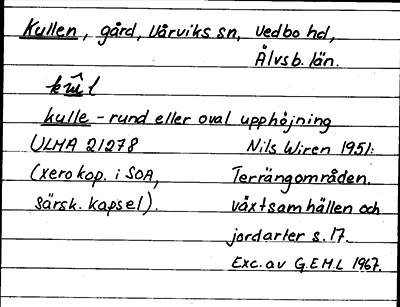 Kullen, gård, Vårviks sn, Vedbo hd,
Älvsb. län.
kulle - rund eller oval upphöjning
ULMA 21278 Nils Wiren 1951:
(xerokop. i SOA, Terrängområden.
särsk. kapsel). växtsamhällen och
jordarter s. 17.
Exc. av G.E.M.L 1967.